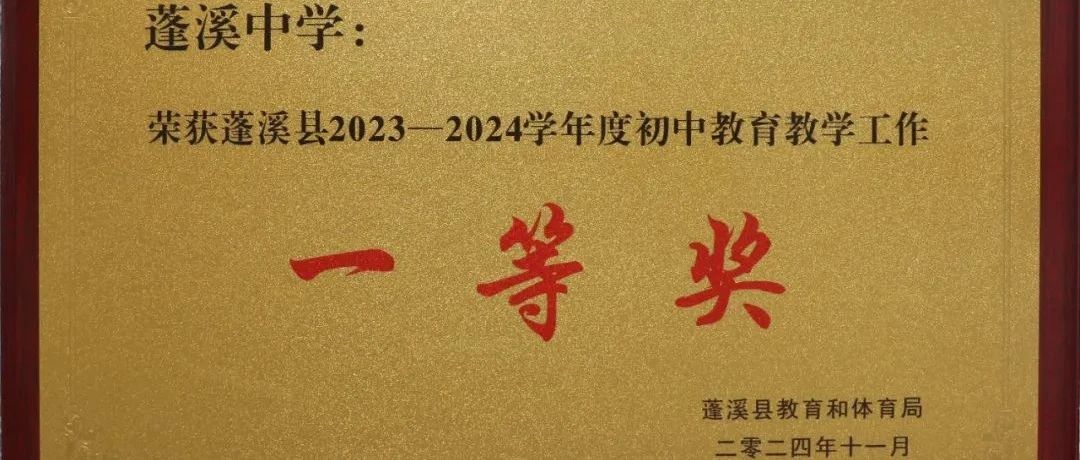 蓬溪中学：
荣获蓬溪县2023—2024学年度初中教育教学工作
一等奖
蓬溪县教育和体育局
二零二四年十一月